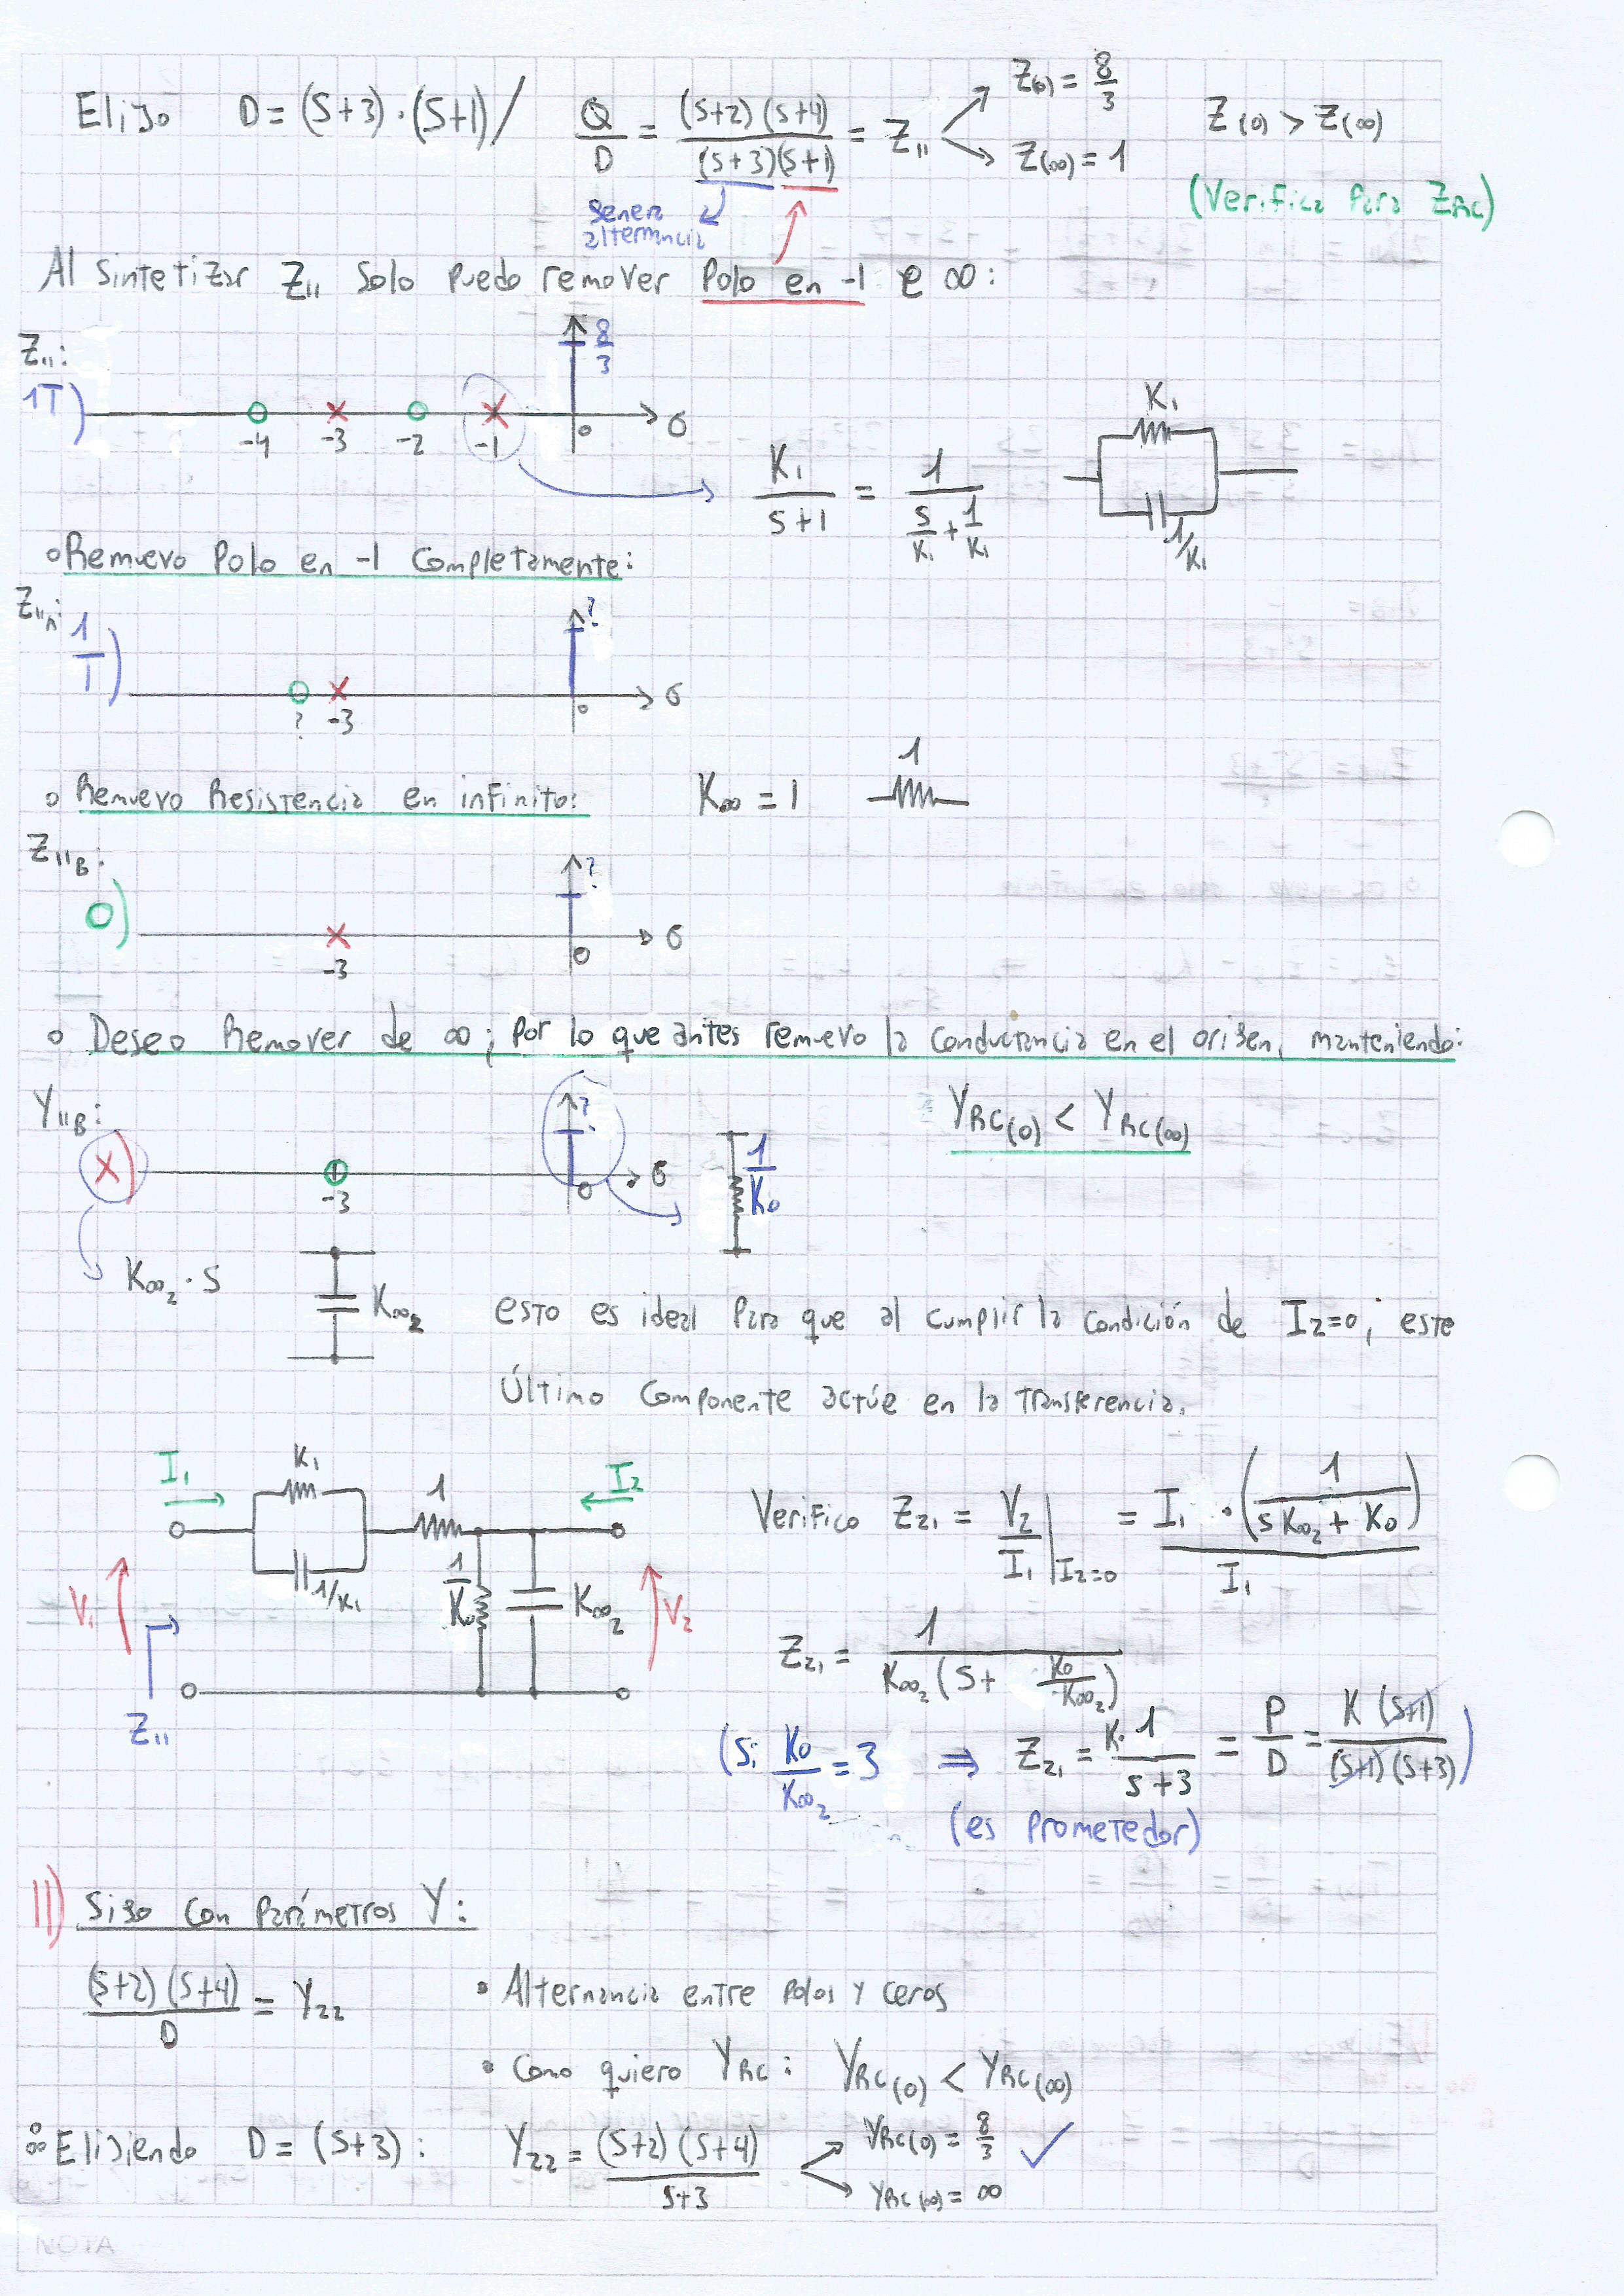 Elijo D = (S+3)·(S+1) / Q/D = (S+2)(S+4) / (S+3)(S+1) = Z11
Z(0) = 8/3
Z(∞) = 1
Z(0) > Z(∞)
(Verifica para ZRC)
genera alternancia
Al sintetizar Z11 solo puedo remover polo en -1 e ∞:
Z11:
1T)
8/3
-4 -3 -2 -1 0 σ
K1/(S+1) = 1/(S/K1 + 1/K1)
K1
1/K1
∘ Remuevo Polo en -1 Completamente:
Z11A:
1/T)
?
? -3 0 σ
∘ Remuevo Resistencia en infinito: K∞ = 1
1
Z11B:
0)
?
-3 0 σ
∘ Deseo Remover de ∞; por lo que antes remuevo la conductancia en el origen, manteniendo:
Y11B:
X)
?
-3 0 σ
1/K0
YRC(0) < YRC(∞)
K∞2·S
K∞2
esto es ideal para que al cumplir la condición de I2=0, este
Último componente actúe en la transferencia.
I1 K1 1 I2
1/K1
1/K0
K∞2
V1 V2
Z11
Verifico Z21 = V2/I1 |I2=0 = I1·(1/(S K∞2 + K0)) / I1
Z21 = 1/(K∞2(S + K0/K∞2))
(Si K0/K∞2 = 3 ⇒ Z21 = K·1/(S+3) = P/D = K(S+1)/(S+1)(S+3))
(es prometedor)
II) Sigo con parámetros Y:
(S+2)(S+4)/D = Y22
• Alternancia entre polos y ceros
• Como quiero YRC: YRC(0) < YRC(∞)
∴ Elijiendo D = (S+3): Y22 = (S+2)(S+4)/(S+3)
YRC(0) = 8/3 ✓
YRC(∞) = ∞